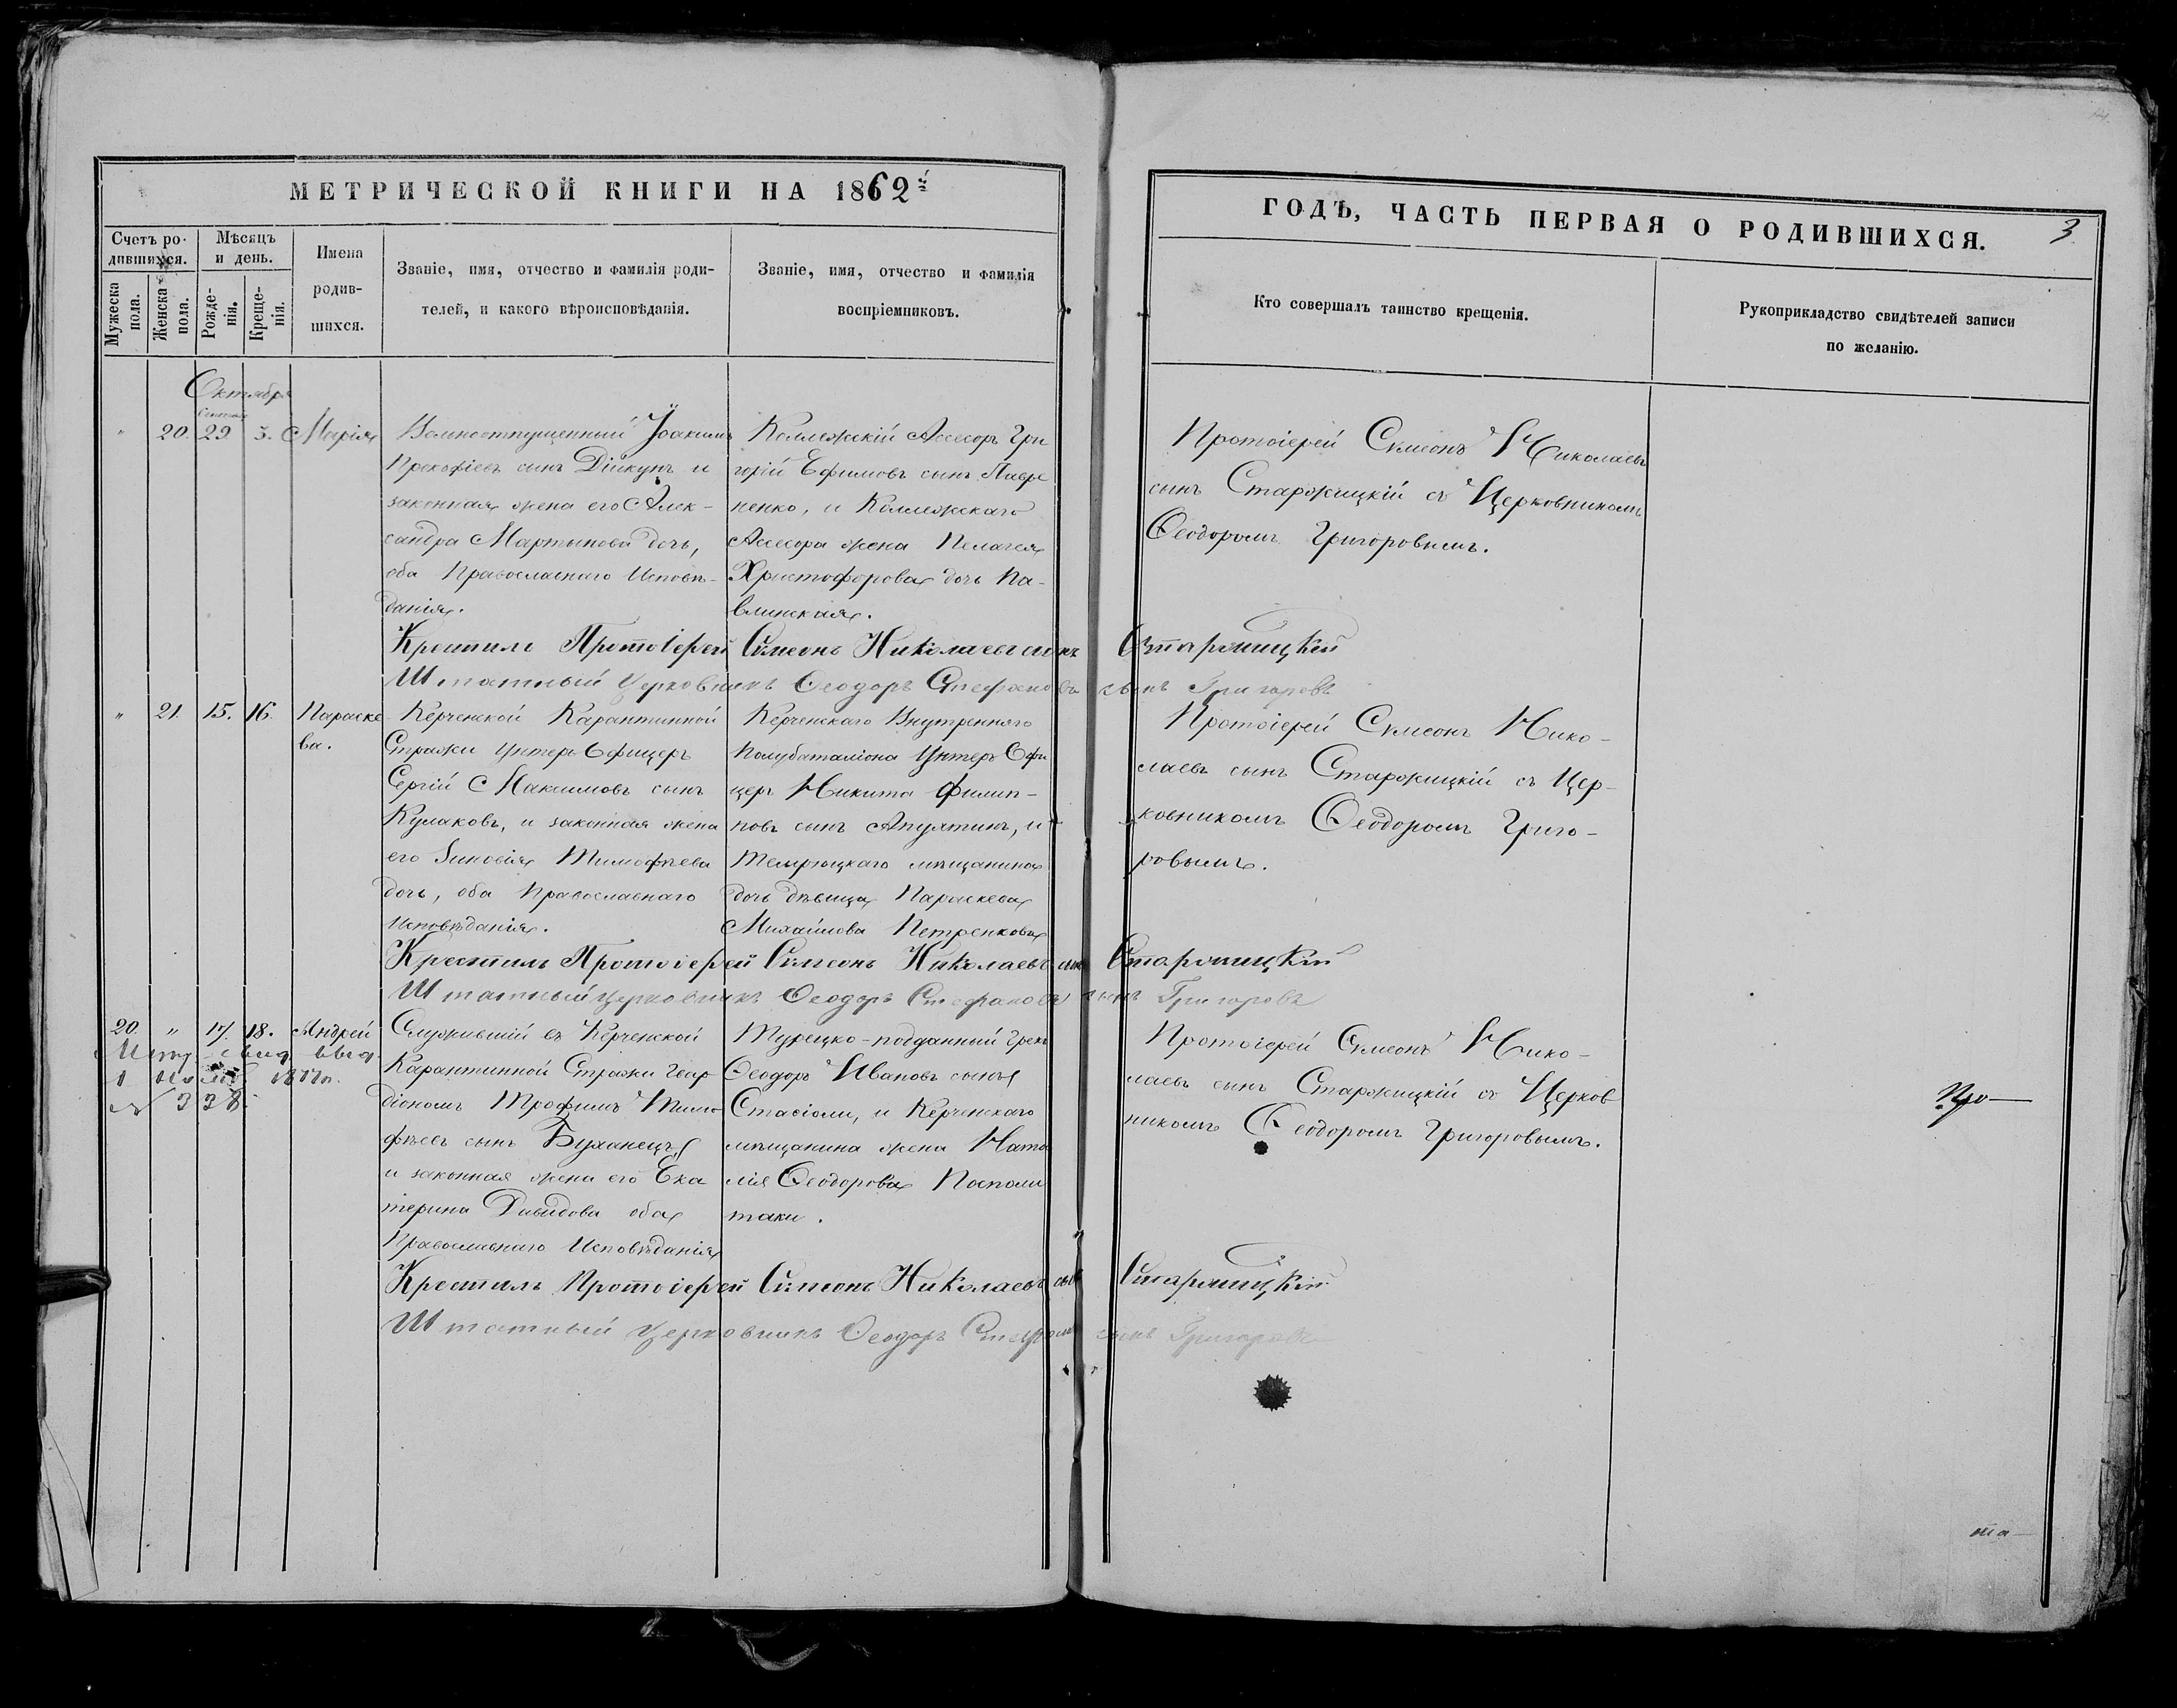 МЕТРИЧЕСКОЙ КНИГИ НА 1862й
ГОДЪ, ЧАСТЬ ПЕРВАЯ О РОДИВШИХСЯ.
3
Счетъ ро-
дившихся.
Мужеска
пола.
Женска
пола.
Мѣсяцъ
и день.
Рожде-
нія.
Креще-
нія.
Имена
родив-
шихся.
Званіе, имя, отчество и фамилія роди-
телей, и какого вѣроисповѣданія.
Званіе, имя, отчество и фамилія
воспріемниковъ.
Кто совершалъ таинство крещенія.
Рукоприкладство свидѣтелей записи
по желанію.
Октября
" 20. 29. 3. Марія
Вольноотпущенный Іоакимъ
Прокофіевъ сынъ Дійкунъ и
законная жена его Алек-
сандра Мартынова дочь,
оба Православнаго Исповѣ-
данія.
Коллежскій Асессоръ Гри
горій Ефимовъ сынъ Лавре
ненко, и Коллежскаго
Асессора жена Пелагея
Христофорова дочь Па-
влинская.
Протоіерей Сѵмеонъ Николаевъ
сынъ Старжицкій съ Церковникомъ
Ѳеодоромъ Григоровымъ.
Крестилъ Протоіерей Сѵмеонъ Николаевъ сынъ Старжицкій
Штатный Церковникъ Ѳеодоръ Стефановъ сынъ Григоровъ
" 21. 15. 16. Параске
ва.
Керченской Карантинной
Стражи Унтеръ Офицеръ
Сергій Максимовъ сынъ
Кулаковъ, и законная жена
его Зиновія Тимофѣева
дочь, оба Православнаго
Исповѣданія.
Керченскаго Внутренняго
Полубаталіона Унтеръ Офи
церъ Никита Филип-
повъ сынъ Апухтинъ, и
Темрюцкаго мѣщанина
дочь дѣвица Параскева
Михайлова Петренкова
Протоіерей Сѵмеонъ Нико-
лаевъ сынъ Старжицкій съ Цер-
ковникомъ Ѳеодоромъ Григо-
ровымъ.
Крестилъ Протоіерей Сѵмеонъ Николаевъ сынъ Старжицкій
Штатный Церковникъ Ѳеодоръ Стефановъ сынъ Григоровъ
20. " 17. 18. Андрей
Метр. свид. выд.
№ 338.
Служившій въ Керченской
Карантинной Стражи Гвар
діономъ Трофимъ Тимо
фѣевъ сынъ Буханецъ,
и законная жена его Ека
терина Давидова оба
Православнаго Исповѣданія
Турецко-подданный Грекъ
Ѳеодоръ Ивановъ сынъ
Стасіоли, и Керченскаго
мѣщанина жена Ната
лія Ѳеодорова Посполи
таки.
Протоіерей Сѵмеонъ Нико-
лаевъ сынъ Старжицкій съ Церков
никомъ Ѳеодоромъ Григоровымъ.
Про—
Крестилъ Протоіерей Сѵмеонъ Николаевъ сынъ Старжицкій
Штатный Церковникъ Ѳеодоръ Стефановъ сынъ Григоровъ
та—